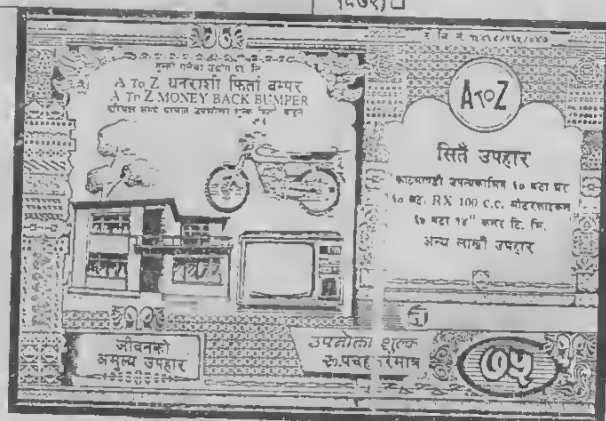 A To Z धनराशी फिर्ता बम्पर
A To Z MONEY BACK BUMPER
A TO Z
सितै उपहार
काठमाण्डौ उपत्यकाभित्र १० वटा घर
१० वटा RX 100 C.C. मोटरसाइकल
१० वटा १४" कलर टि. भि.
अन्य लाखौं उपहार
जीवनको
अमुल्य उपहार
उपभोक्ता शुल्क
रु.पचहत्तरमात्र
७५